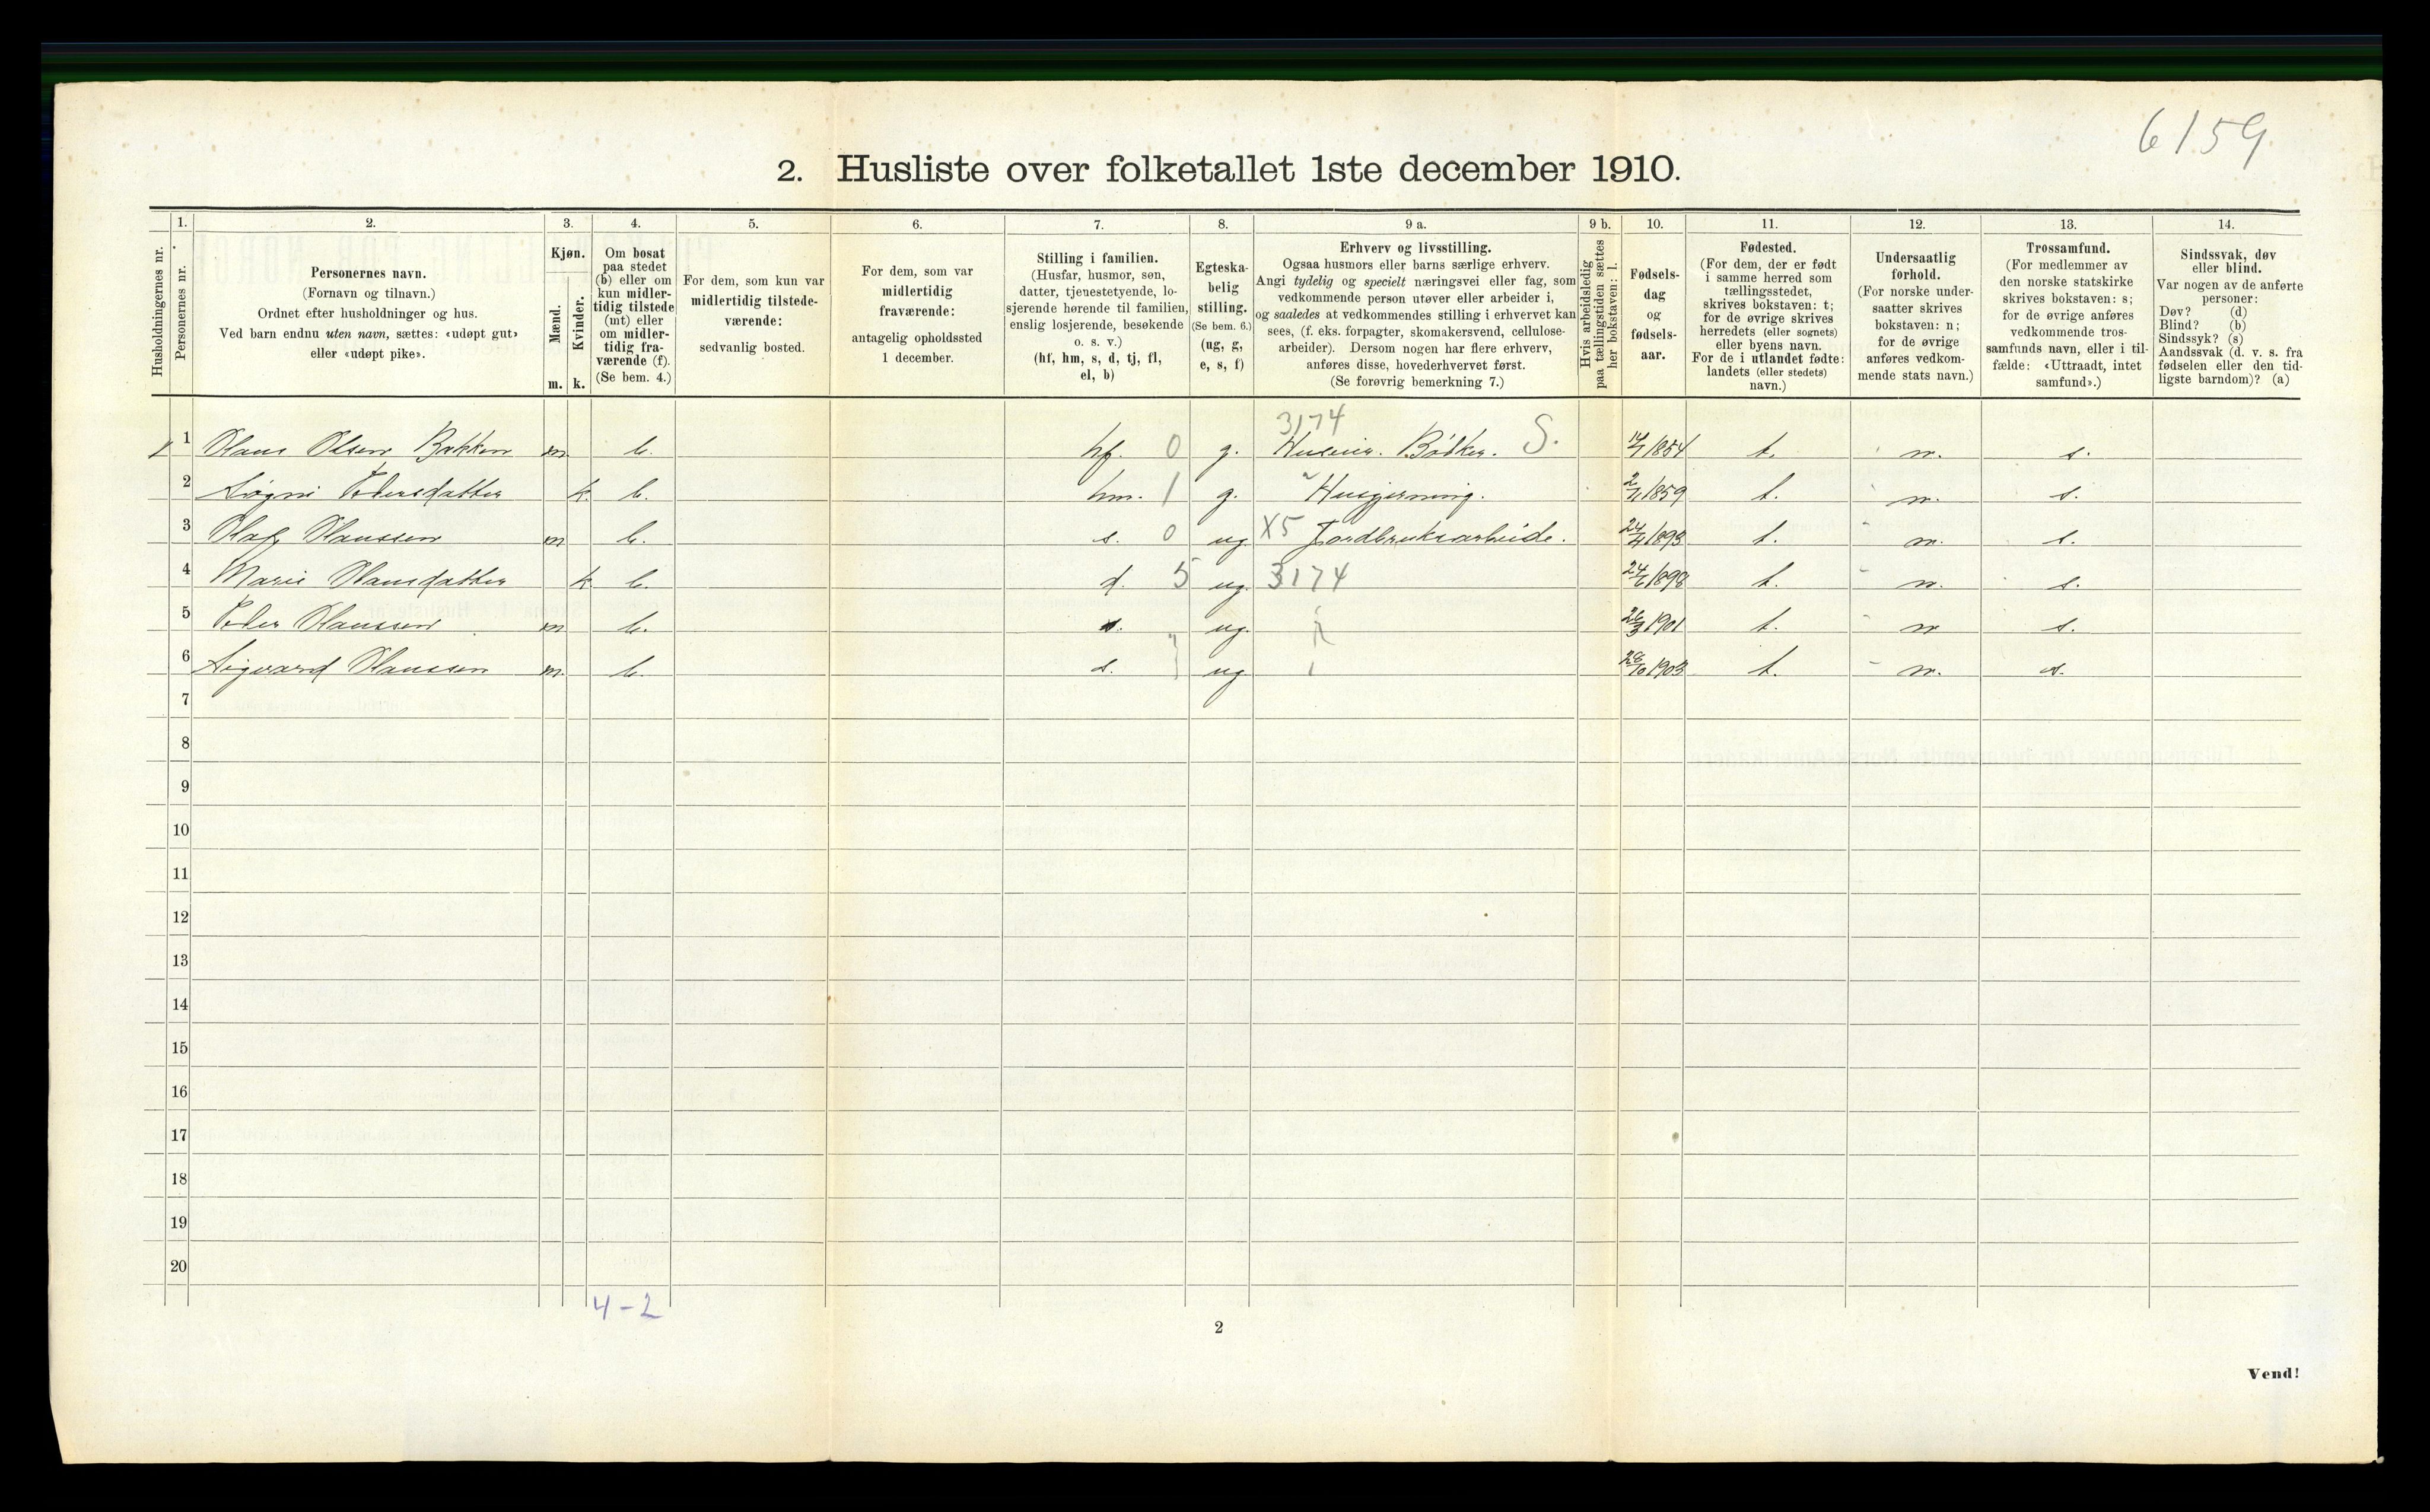 6159
2. Husliste over folketallet 1ste december 1910.
1. 2. 3. 4. 5. 6. 7. 8. 9 a. 9 b. 10. 11. 12. 13. 14.
Husholdningernes nr.
Personernes nr.
Personernes navn.
(Fornavn og tilnavn.)
Ordnet efter husholdninger og hus.
Ved barn endnu uten navn, sættes: «udøpt gut»
eller «udøpt pike».
Kjøn.
Mænd.
Kvinder.
m. k.
Om bosat
paa stedet
(b) eller om
kun midler-
tidig tilstede
(mt) eller
om midler-
tidig fra-
værende (f).
(Se bem. 4.)
For dem, som kun var
midlertidig tilstede-
værende:
sedvanlig bosted.
For dem, som var
midlertidig
fraværende:
antagelig opholdssted
1 december.
Stilling i familien.
(Husfar, husmor, søn,
datter, tjenestetyende, lo-
sjerende hørende til familien,
enslig losjerende, besøkende
o. s. v.)
(hf, hm, s, d, tj, fl,
el, b)
Egteska-
belig
stilling.
(Se bem. 6.)
(ug, g,
e, s, f)
Erhverv og livsstilling.
Ogsaa husmors eller barns særlige erhverv.
Angi tydelig og specielt næringsvei eller fag, som
vedkommende person utøver eller arbeider i,
og saaledes at vedkommendes stilling i erhvervet kan
sees, (f. eks. forpagter, skomakersvend, cellulose-
arbeider). Dersom nogen har flere erhverv,
anføres disse, hovederhvervet først.
(Se forøvrig bemerkning 7.)
Hvis arbeidsledig
paa tællingstiden sættes
her bokstaven: l.
Fødsels-
dag
og
fødsels-
aar.
Fødested.
(For dem, der er født
i samme herred som
tællingsstedet,
skrives bokstaven: t;
for de øvrige skrives
herredets (eller sognets)
eller byens navn.
For de i utlandet fødte:
landets (eller stedets)
navn.)
Undersaatlig
forhold.
(For norske under-
saatter skrives
bokstaven: n;
for de øvrige
anføres vedkom-
mende stats navn.)
Trossamfund.
(For medlemmer av
den norske statskirke
skrives bokstaven: s;
for de øvrige anføres
vedkommende tros-
samfunds navn, eller i til-
fælde: «Uttraadt, intet
samfund».)
Sindssvak, døv
eller blind.
Var nogen av de anførte
personer:
Døv? (d)
Blind? (b)
Sindssyk? (s)
Aandssvak (d. v. s. fra
fødselen eller den tid-
ligste barndom)? (a)
3174
1 Hans Olsen Bakken m. b. hf. 0 g. Huseier. Bødker. S. 1854 t. n. s.
2 Pedersdatter k. b. hm. 1 g. Husgjerning. 1859 t. n. s.
3 Olaf Hanssen m b. s. 0 ug X5 Jordbruksarbeide. 1893 t. n. s.
4 Marie Hansdatter k b. d. 5 ug. 3174 1898 t. n. s.
5 Peder Hanssen m b. s. ug. 26/3 1901 t. n s.
6 Sigvard Hanssen m. b. s. ug 28/10 1903 t. n. s.
7
8
9
10
11
12
13
14
15
16
17
18
19
20
4-2
2
Vend!